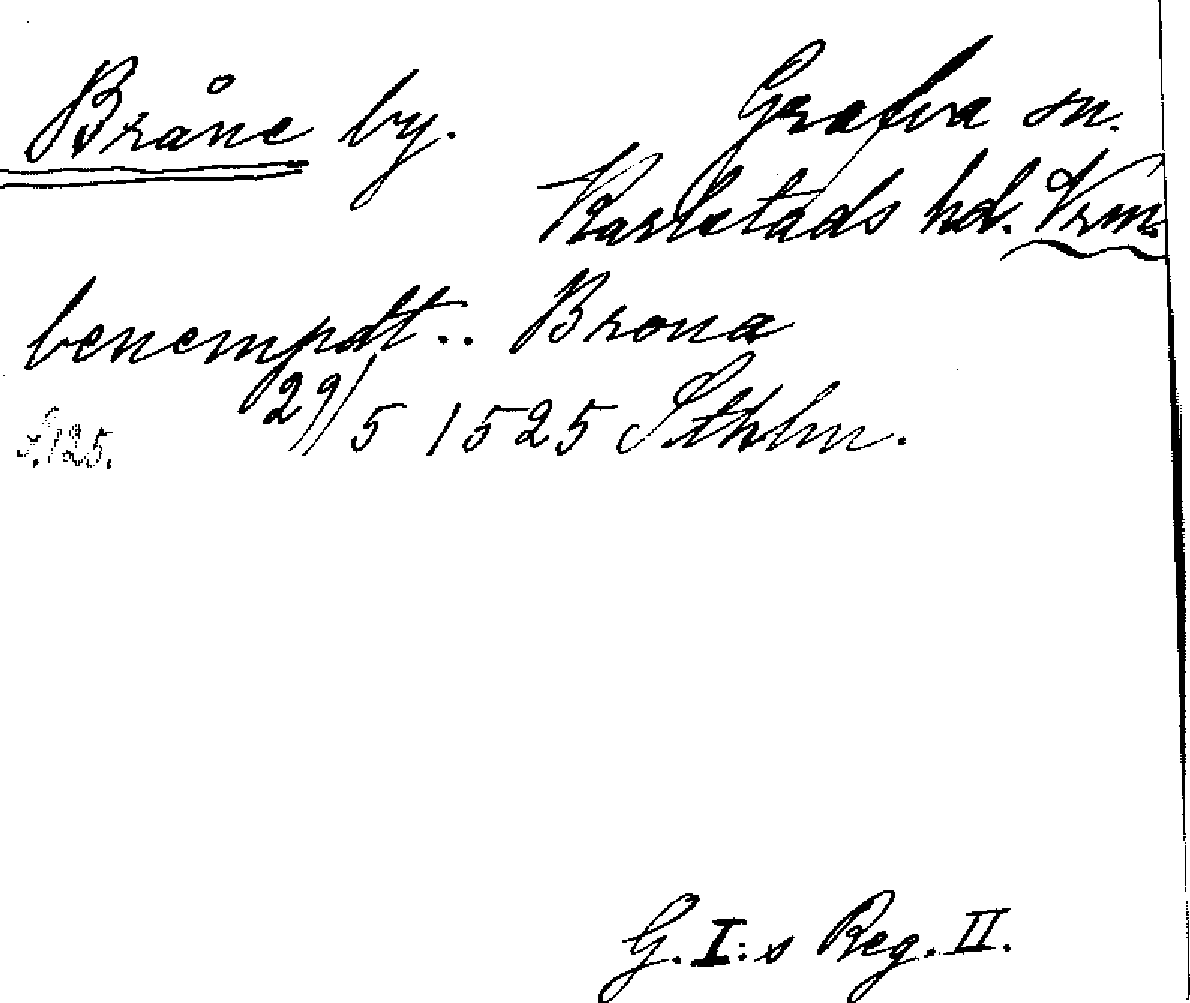 Bråne by. Grafva sn.
Karlstads hd. Vrm.
benempdt.. Brona
29/5 1525 Sthlm.
S.125.
G. I:s Reg. II.